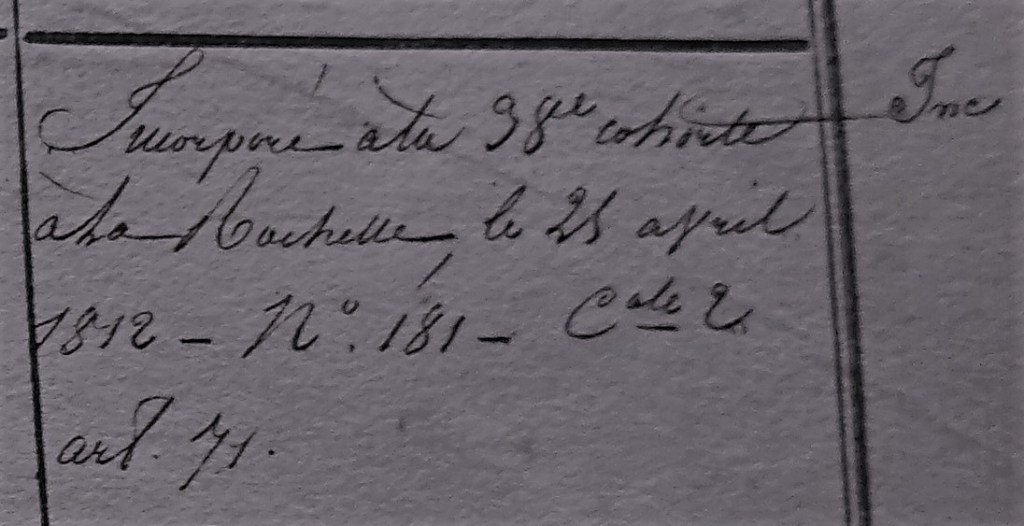 Incorporé à la 38e cohorte Inc
à la Rochelle le 25 avril
1812 - No. 181 - Cale 2
art. 71.